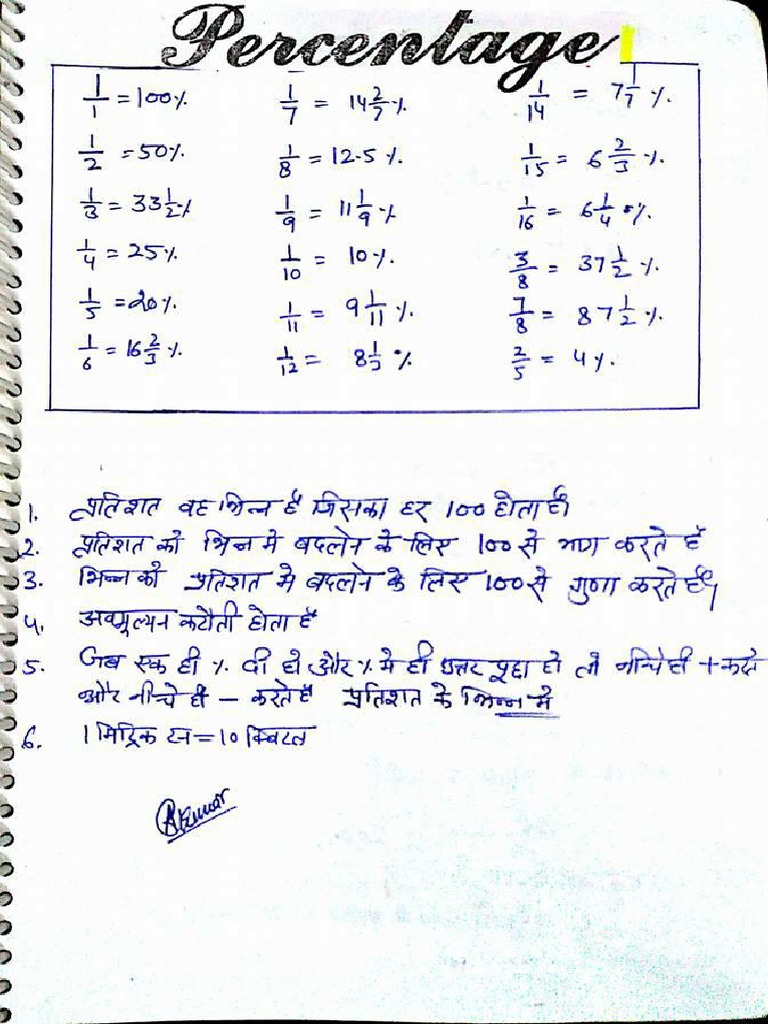 Percentage
1/1 = 100% 1/7 = 14 2/7 % 1/14 = 7 1/7 %
1/2 = 50% 1/8 = 12.5 % 1/15 = 6 2/3 %
1/3 = 33 1/2 % 1/9 = 11 1/9 % 1/16 = 6 1/4 %
1/4 = 25% 1/10 = 10% 3/8 = 37 1/2 %
1/5 = 20% 1/11 = 9 1/11 % 7/8 = 87 1/2 %
1/6 = 16 2/3 % 1/12 = 8 1/3 % 2/5 = 4%
1. प्रतिशत वह भिन्न है जिसका हर 100 होता है।
2. प्रतिशत को भिन्न मे बदलने के लिए 100 से भाग करते है
3. भिन्न को प्रतिशत मे बदलने के लिए 100 से गुणा करते है।
4. अवमूल्यन कटौती होता है
5. जब एक ही % दी हो और % मे ही उत्तर पूछा हो तो नीचे ही + करते
और नीचे ही - करते है प्रतिशत के भिन्न मे
6. 1 मिट्रिक टन = 10 क्विंटल
Kumar